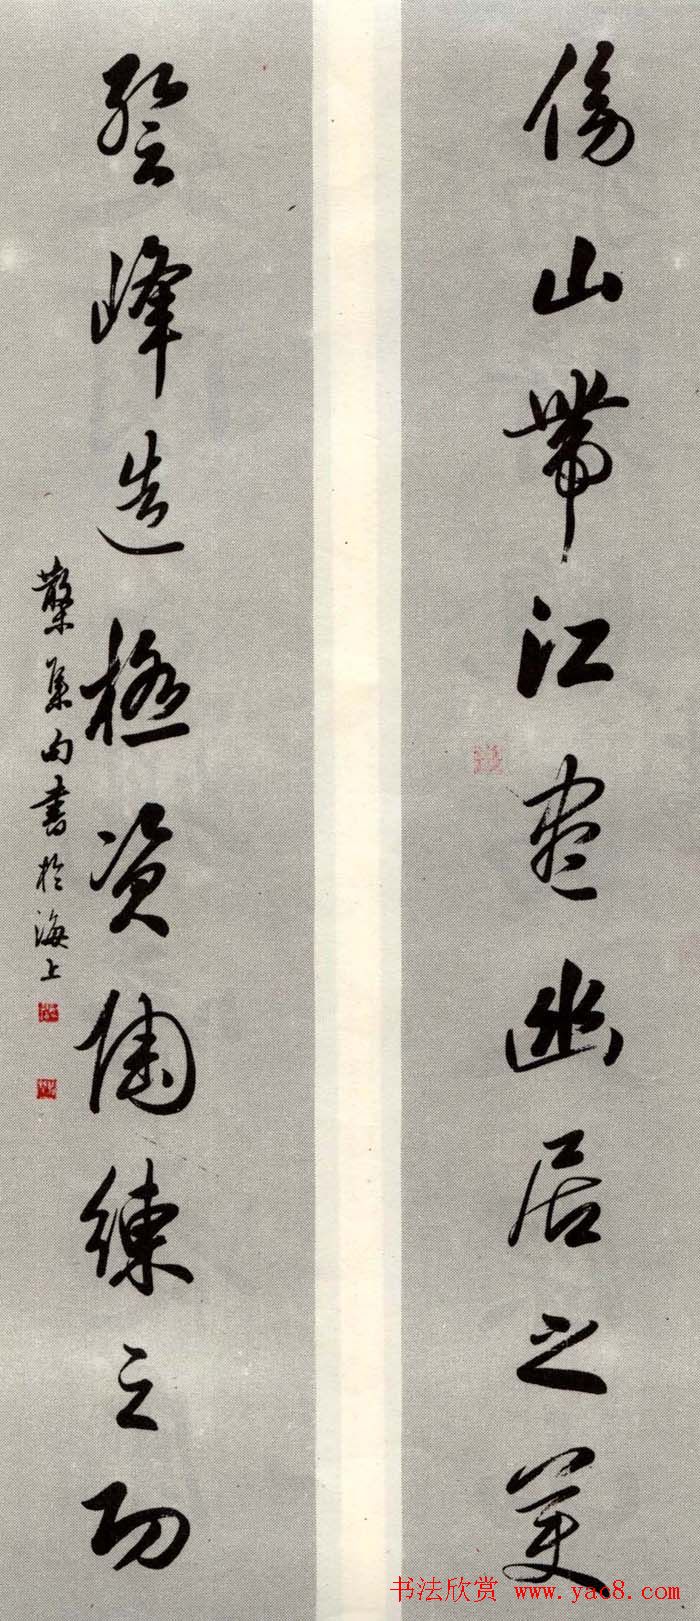 傍山帶江盡幽居之美
登峰造極資陶練之功
槃集句書於海上
书法欣赏 www.yac8.com